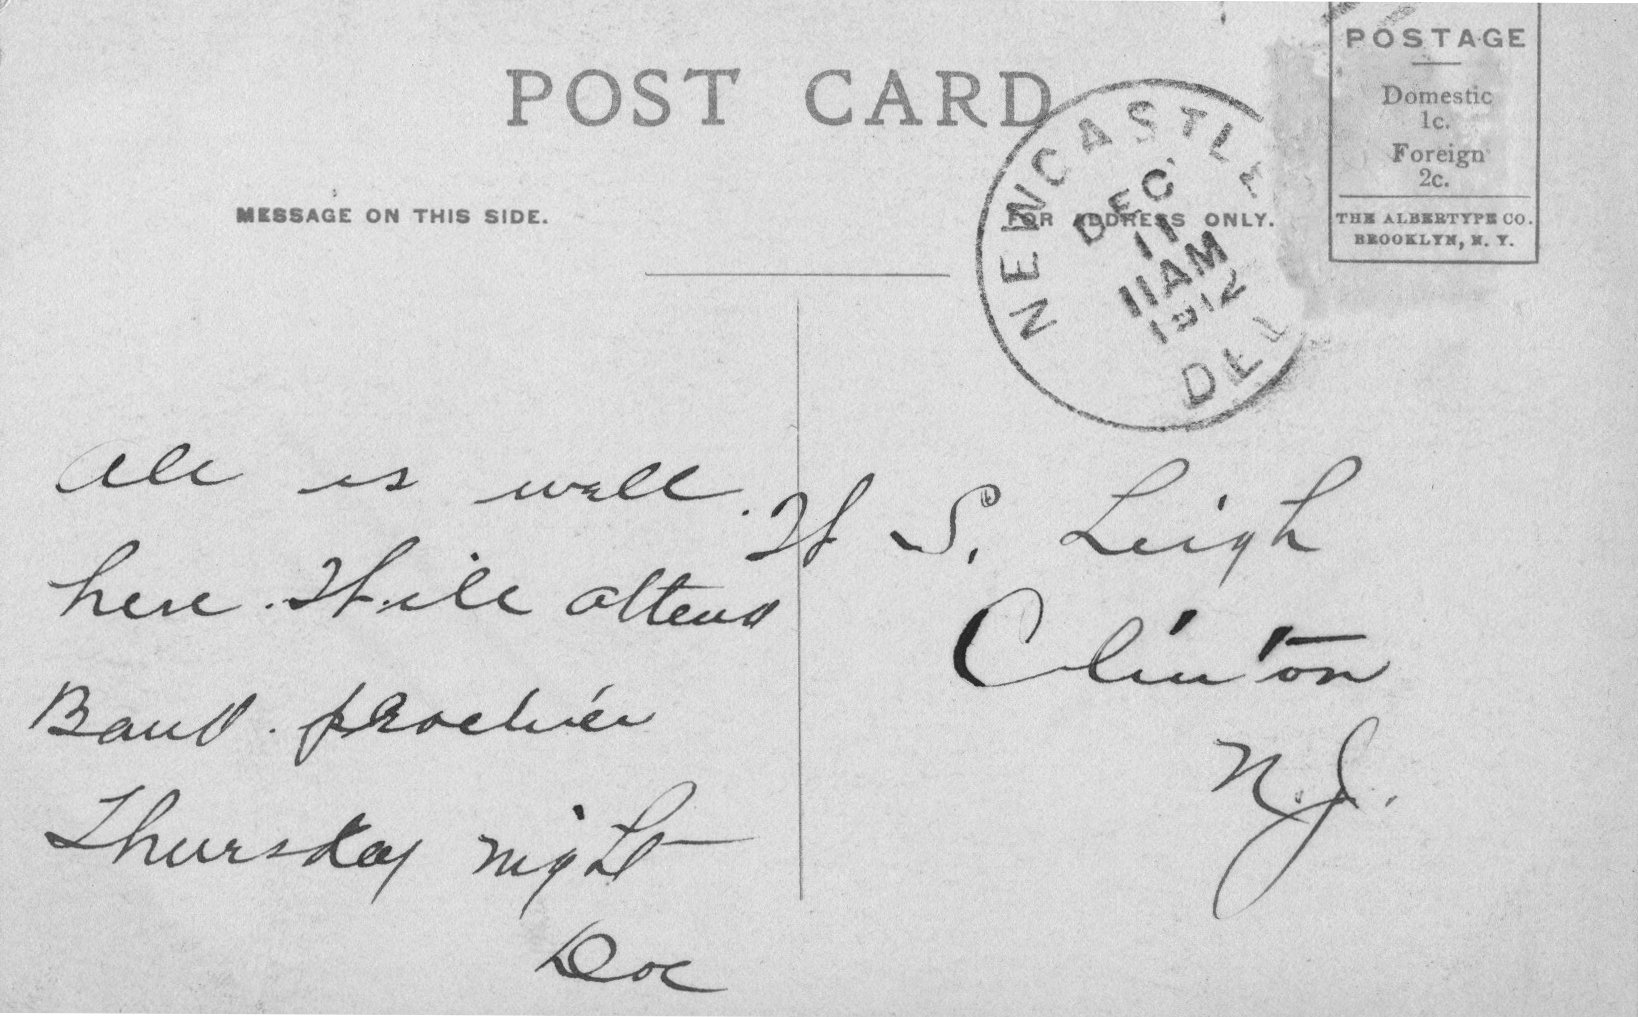 POST CARD
MESSAGE ON THIS SIDE.
FOR ADDRESS ONLY.
POSTAGE
Domestic
1c.
Foreign
2c.
THE ALBERTYPE CO.
BROOKLYN, N. Y.
NEWCASTLE
DEC
11
11AM
1912
DEL
All is well
here. Will attend
Band
Thursday night
Doc
W S. Leigh
Clinton
N.J.